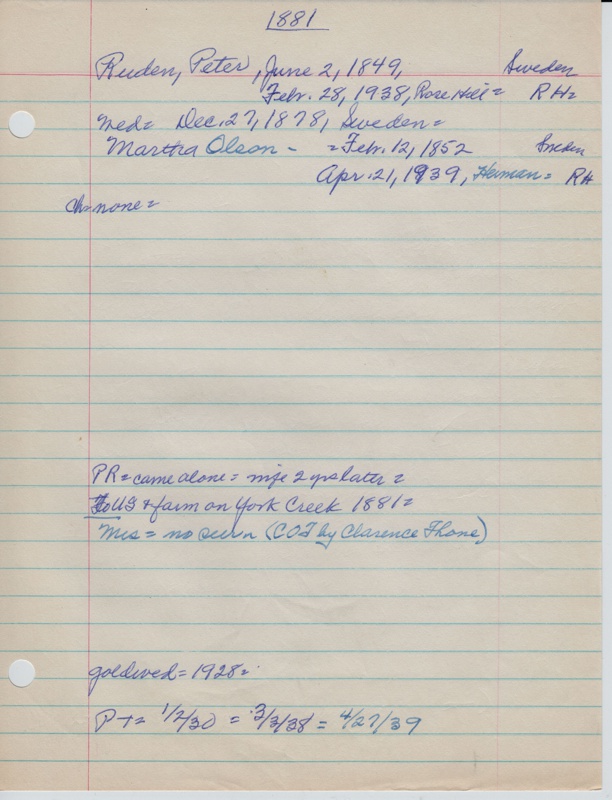 1881
Ruden, Peter, June 2, 1849, Sweden
Febr. 28, 1938, Rose Hill = RH=
Wed= Dec. 27, 1878, Sweden=
Martha Olson - = Febr. 12, 1852 Sweden
Apr. 21, 1939, Herman= RH
Ch=none=
PR= came alone = wife 2 yrs later =
To US & farm on York Creek 1881=
Mrs = no surv (COT by Clarence Thone)
goldwed= 1928=
P += 1/2/30 = 3/3/38 = 4/27/39